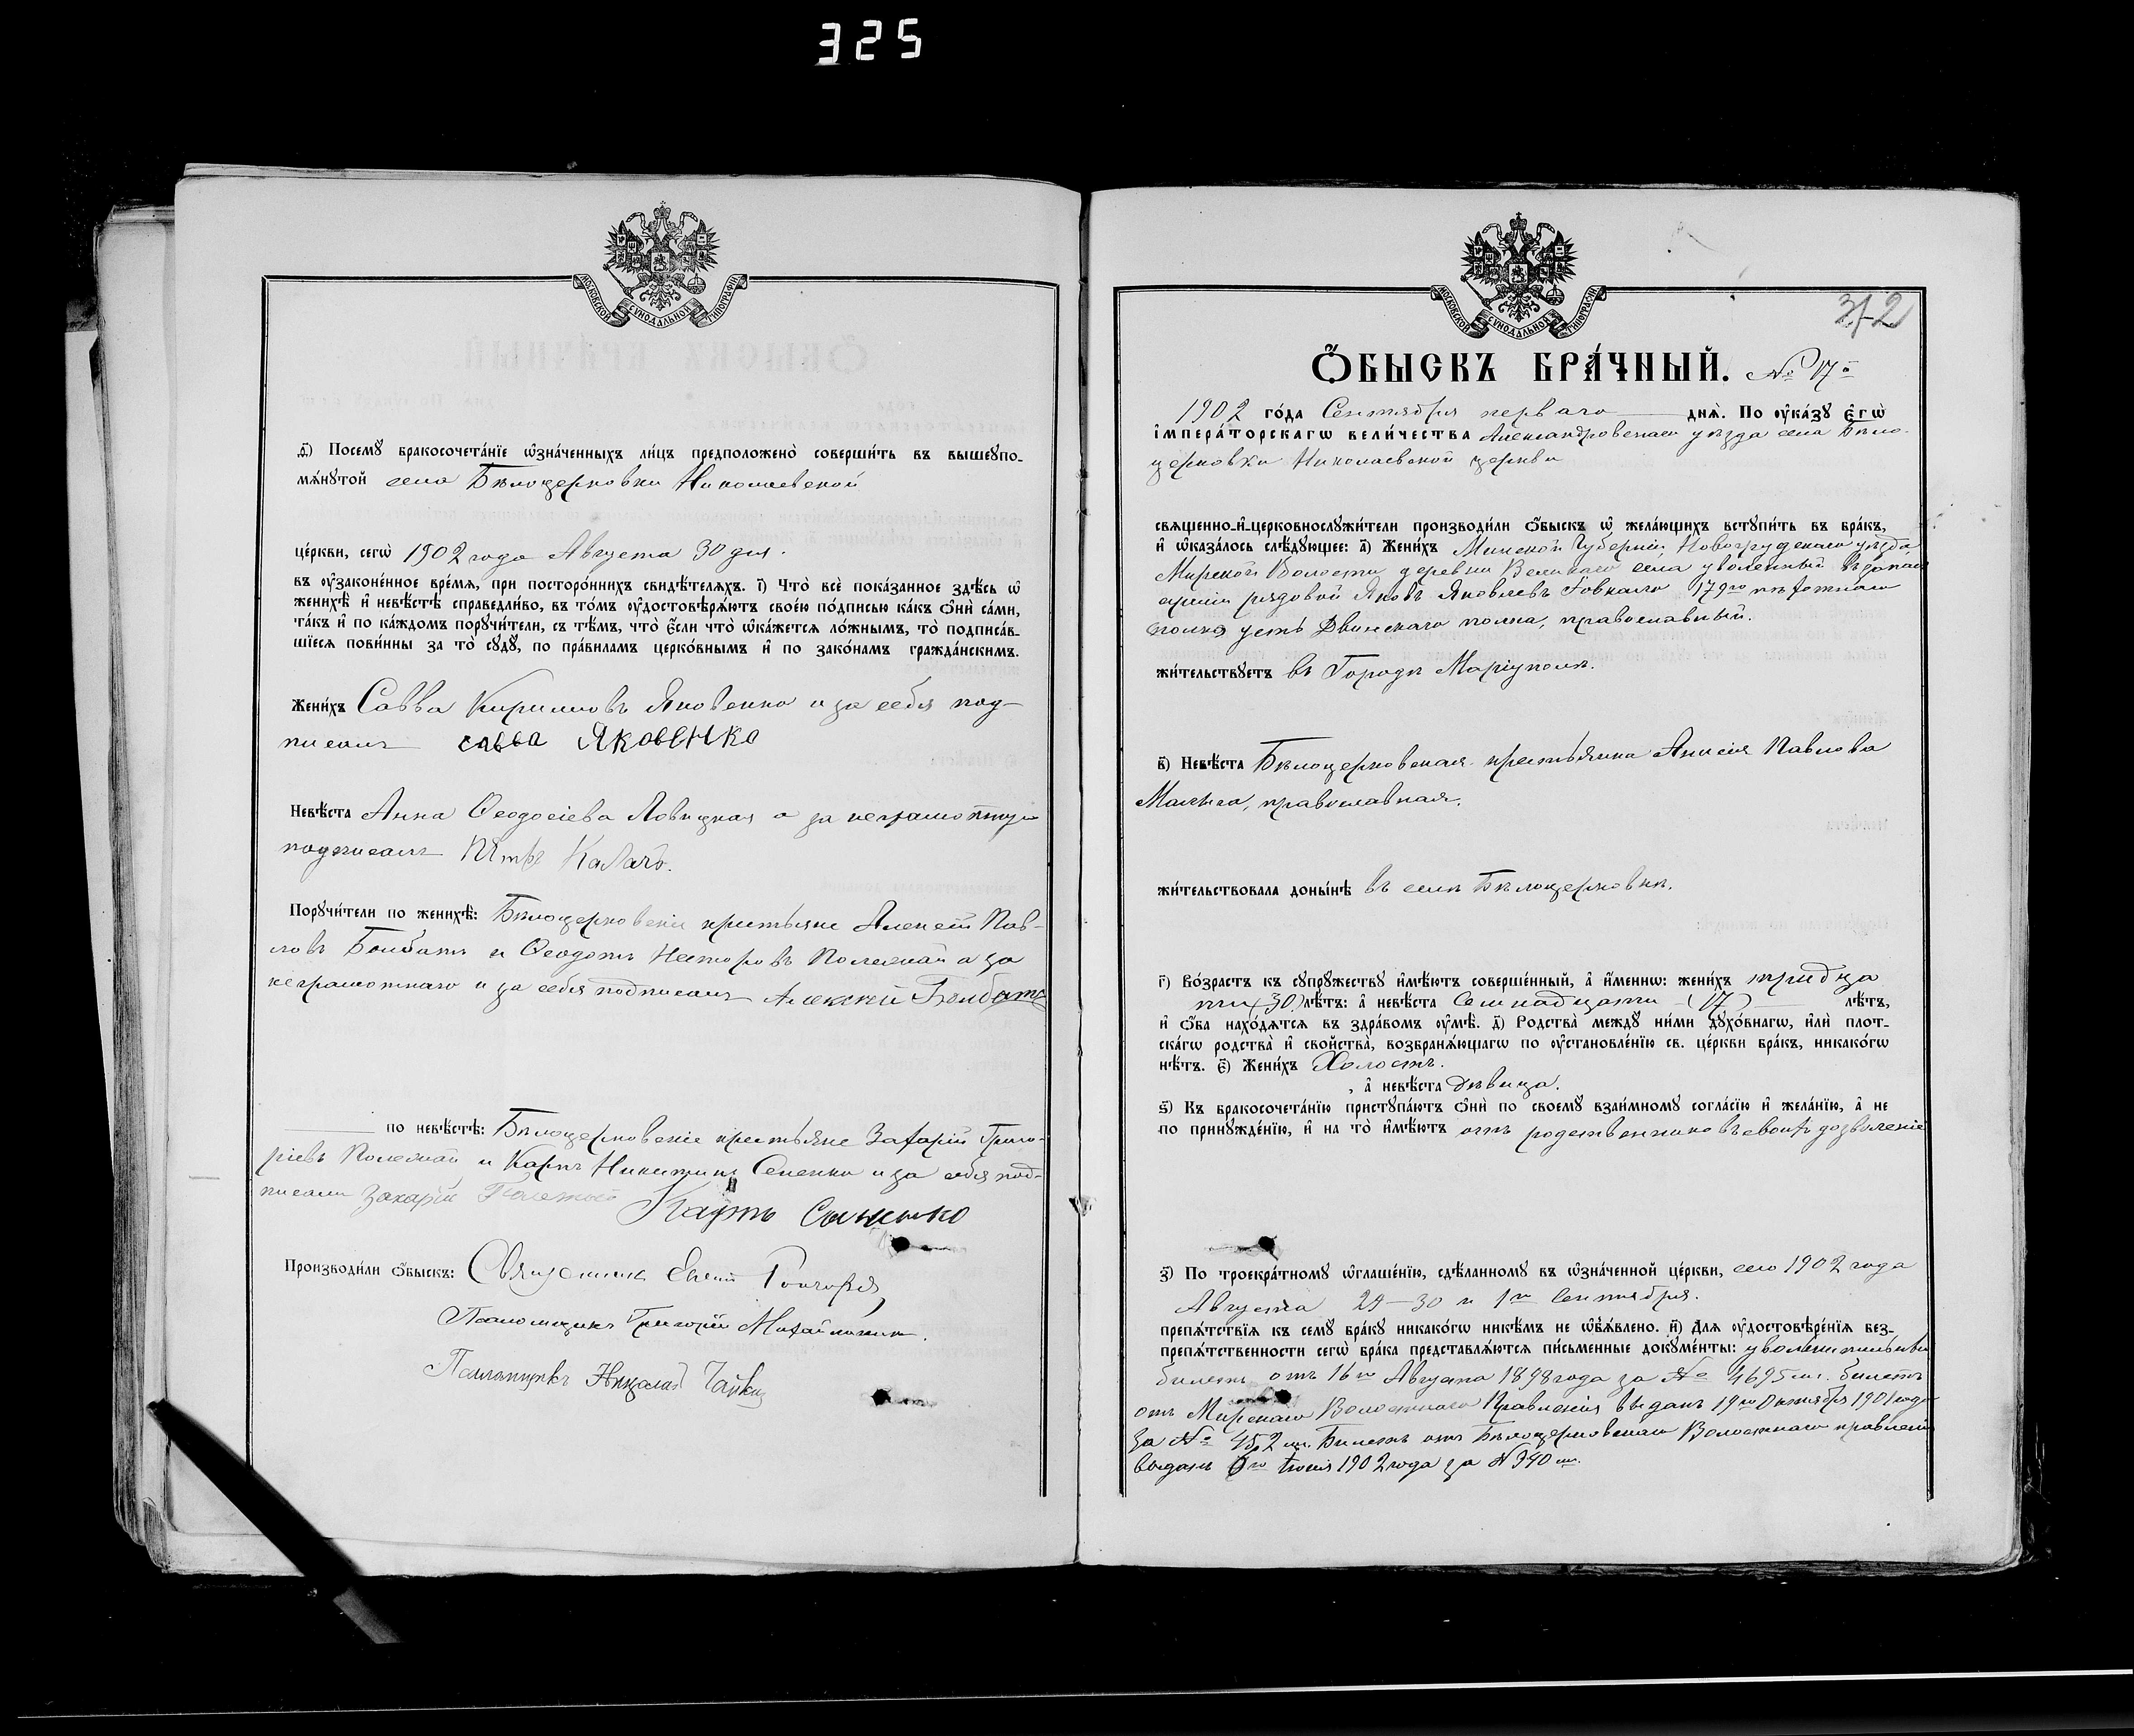 325
МОСКОВСКОЙ СѴНОДАЛЬНОЙ ТИПОГРАФІИ
ѳ҃) Посемꙋ бракосочета́нїе ѡ҆зна́ченныхъ ли́цъ предположено̀ соверши́ть въ вышеꙋпо-
мѧ́нꙋтой села Бѣлоцерковки Николаевской
це́ркви, сегѡ̀ 1902 года Августа 30 дня.
въ ᲂу҆зако́ненное вре́мѧ, при посторо́ннихъ свидѣ́телѧхъ. і҃) Что̀ всѐ пока́занное здѣ́сь ѡ҆
женихѣ̀ и҆ невѣ́стѣ справедли́во, въ то́мъ ᲂу҆достовѣрѧ́ютъ свое́ю по́дписью ка́къ ѻ҆нѝ са́ми,
та́къ и҆ по ка́ждомъ порꙋчи́тели, съ тѣ́мъ, что̀ є҆́сли что̀ ѡ҆ка́жетсѧ ло́жнымъ, то̀ подписа́в-
шїесѧ пови́нны за то̀ сꙋдꙋ̀, по пра́виламъ церко́внымъ и҆ по зако́намъ гражда́нскимъ.
Жени́хъ Савва Кириловъ Яковенко и за себя под-
писалъ савва Яковенко
Невѣ́ста Анна Ѳеодосіева Ловицкая а за неграмотную
подписалъ Пётръ Калачъ.
Порꙋчи́тели по женихѣ̀: Бѣлоцерковскіе крестьяне Алексѣй Пав-
ловъ Бомбатъ и Ѳеодотъ Несторовъ Полежай а за
неграмотнаго и за себя подписалъ Алексѣй Бомбатъ
по невѣ́стѣ: Бѣлоцерковскіе крестьяне Захарій Григо-
ріевъ Полежай и Карпъ Никитинъ Сененко и за себя под-
писали Захарій Полежай Карпъ Сененко
Производи́ли ѻ҆́быскъ: Священникъ
Псаломщикъ Григорій
Псаломщикъ Николай
МОСКОВСКОЙ СѴНОДАЛЬНОЙ ТИПОГРАФІИ
Ѻ҆́БЫСКЪ БРА́ЧНЫЙ. № 17й
1902 го́да Сентября перваго днѧ̀. По ᲂу҆ка́зꙋ є҆гѡ̀
і҆мпера́торскагѡ вели́чества Александровскаго уѣзда села Бѣло-
церковки Николаевской церкви
свѧще́нно-и҆-церковнослꙋжи́тели производи́ли ѻ҆́быскъ ѡ҆ жела́ющихъ встꙋпи́ть въ бра́къ,
и҆ ѡ҆каза́лось слѣ́дꙋющее: а҃) Жени́хъ Минской Губерніи, Новогрудскаго уѣзда,
Мирской Волости деревни Великаго села уволенный въ запас
арміи рядовой Яковъ Яковлевъ 179го пѣхотнаго
полка усть Двинскаго полка, православный.
жи́тельствꙋетъ въ Городѣ Маріуполѣ.
в҃) Невѣ́ста Бѣлоцерковская крестьянка Анисія Павлова
православная.
жи́тельствовала доны́нѣ въ селѣ Бѣлоцерковкѣ.
г҃) Во́зрастъ къ сꙋпрꙋ́жествꙋ и҆мѣ́ютъ соверше́нный, а҆ и҆́меннѡ: жени́хъ тридца
ти (30) лѣ́тъ: а҆ невѣ́ста Семнадцати (17) лѣ́тъ,
и҆ ѻ҆́ба нахо́дѧтсѧ въ здра́вомъ ᲂу҆мѣ̀. д҃) Родства̀ междꙋ̀ ни́ми дꙋхо́внагѡ, и҆лѝ плот-
ска́гѡ родства̀ и҆ сво́йства, возбранѧ́ющагѡ по ᲂу҆становле́нїю св. це́ркви бра́къ, никако́гѡ
нѣ́тъ. є҃) Жени́хъ Холостъ.
, а҆ невѣ́ста дѣвица.
ѕ҃) Къ бракосочета́нїю пристꙋпа́ютъ ѻ҆нѝ по своемꙋ̀ взаи́мномꙋ согла́сїю и҆ жела́нїю, а҆ не
по принꙋжде́нїю, и҆ на то̀ и҆мѣ́ютъ отъ родственниковъ своихъ дозволеніе
з҃) По троекра́тномꙋ ѡ҆глаше́нїю, сдѣ́ланномꙋ въ ѡ҆зна́ченной це́ркви, сего 1902 года
Августа 29–30 и 1го Сентября.
препѧ́тствїѧ къ семꙋ̀ бра́кꙋ никако́гѡ никѣ́мъ не ѡ҆б̾ѧ́влено. и҃) Длѧ ᲂу҆достовѣре́нїѧ без-
препѧ́тственности сегѡ̀ бра́ка представлѧ́ютсѧ пи́сьменные докꙋме́нты: увольнительный
билетъ отъ 16го Августа 1898 года за № 4695м. билетъ
отъ Мирскаго Волостнаго Правленія выданъ 19го Октября 1901 года
за № 452м. Билетъ отъ Бѣлоцерковскаго Волостнаго правленія
выданъ Іюня 1902 года за № 340м.